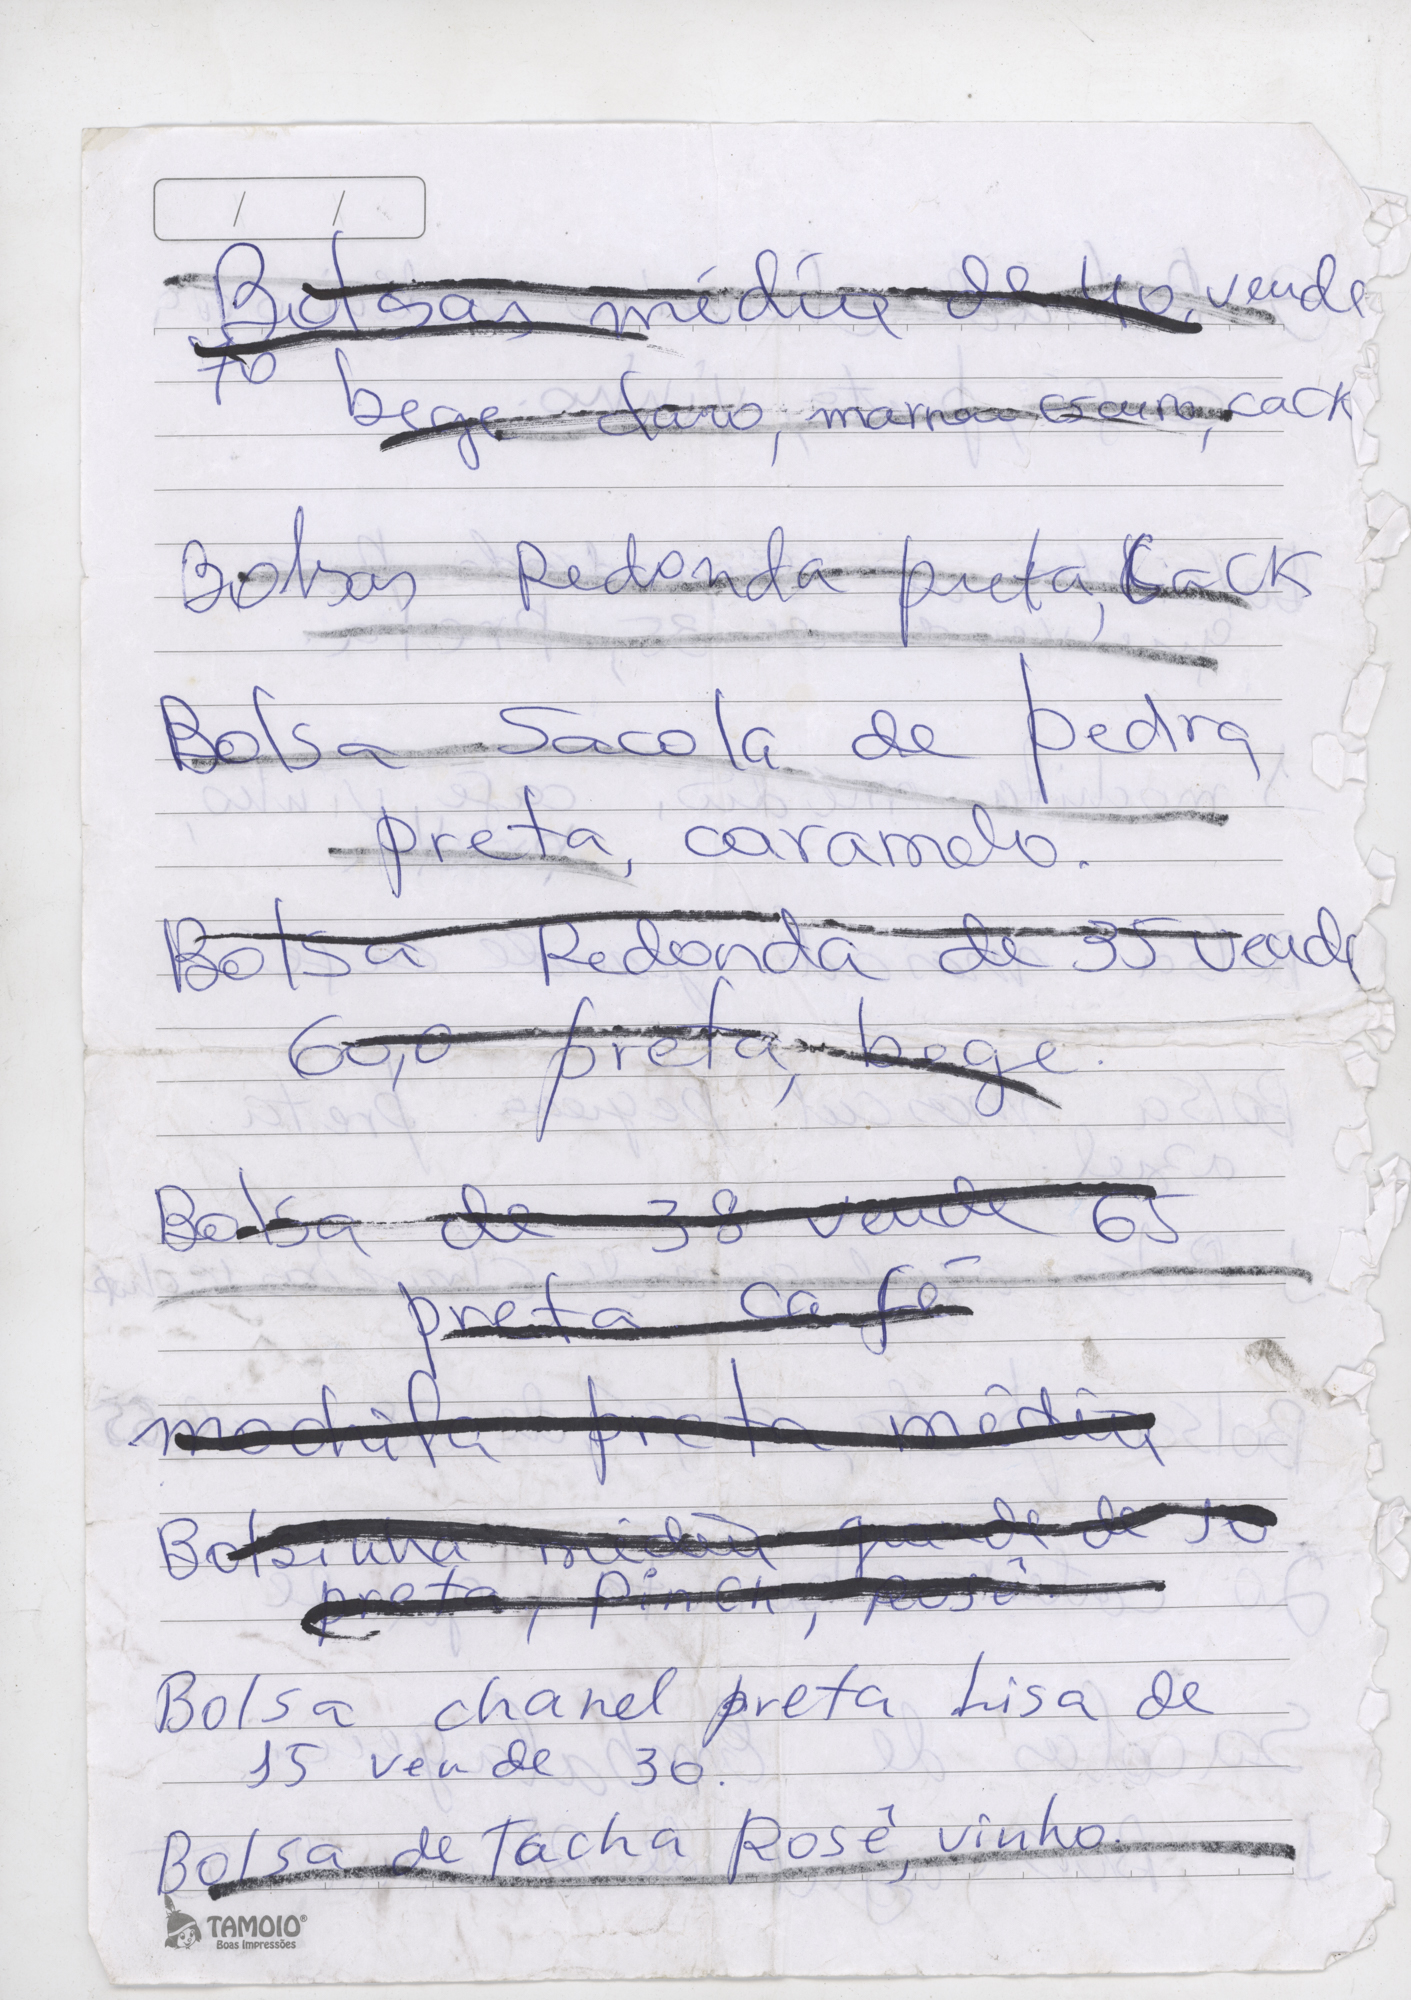 / /
Bolsas média de 40, vende
70
bege claro, marrou escuro, cack
Bolsas Redonda preta, cack
Bolsa Sacola de pedra
preta, caramelo.
Bolsa Redonda de 35 vende
60,0 preta, bege.
Bolsa de 38 vende 65
preta café
mochila preta média
Bolsinha média grande de 10
preta, Pinck, rosê.
Bolsa chanel preta Lisa de
15 vende 30.
Bolsa de Tacha Rosê, vinho.
TAMOIO®
Boas Impressões